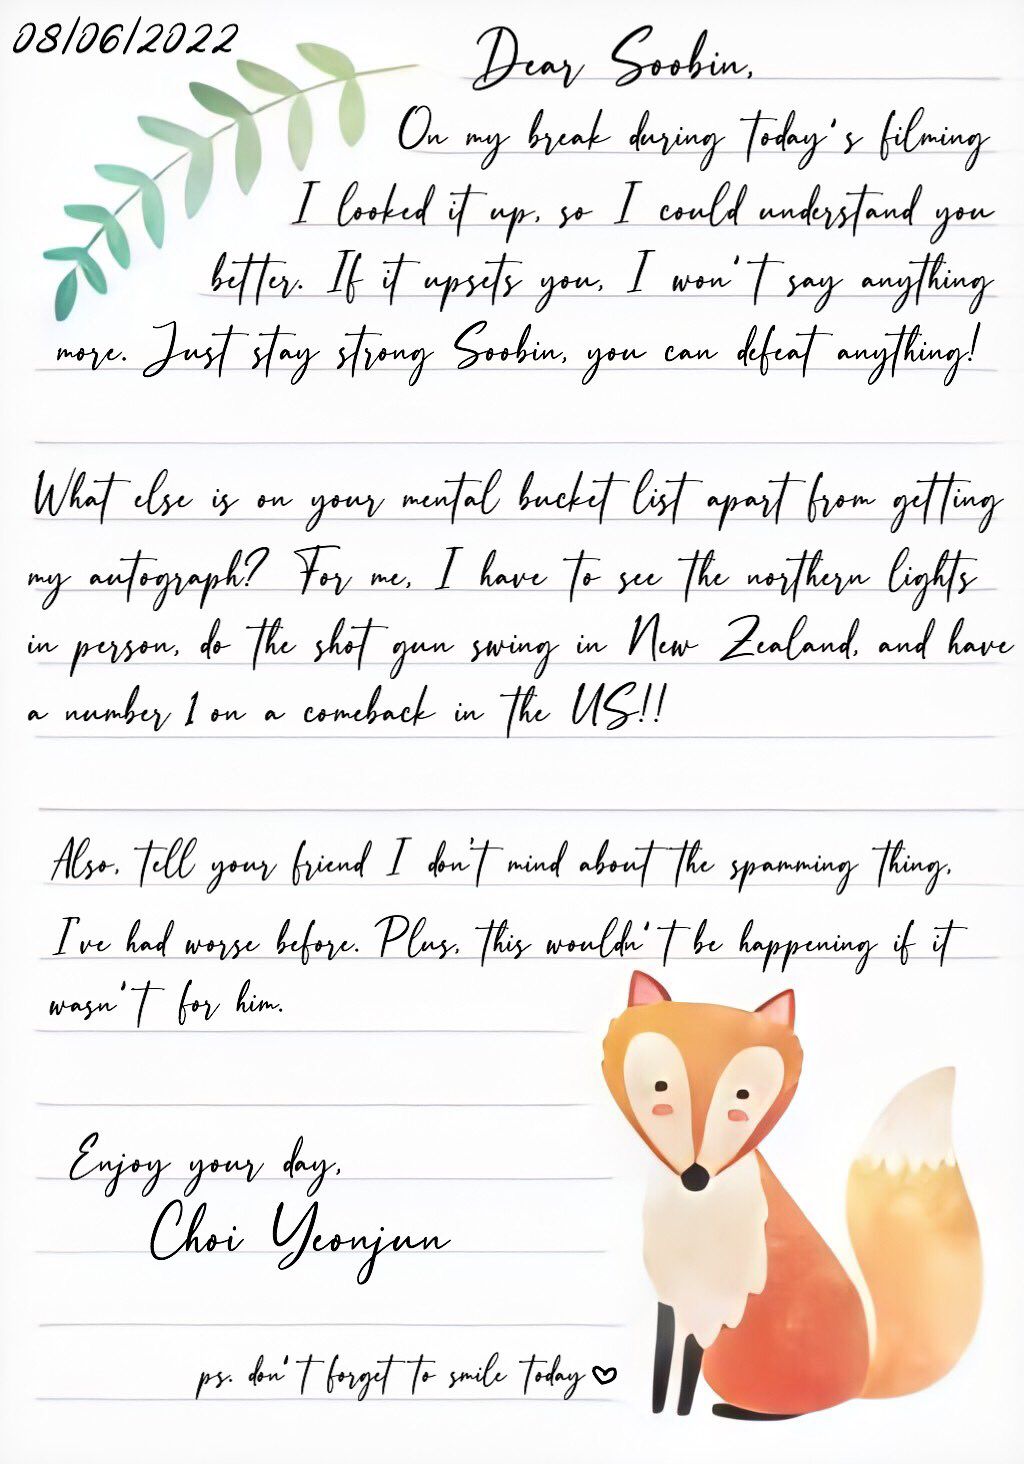 08/06/2022
Dear Soobin,
On my break during today's filming
I looked it up, so I could understand you
better. If it upsets you, I won't say anything
more. Just stay strong Soobin, you can defeat anything!
What else is on your mental bucket list apart from getting
my autograph? For me, I have to see the northern lights
in person, do the shot gun swing in New Zealand, and have
a number 1 on a comeback in the US!!
Also, tell your friend I don't mind about the spamming thing,
I've had worse before. Plus, this wouldn't be happening if it
wasn't for him.
Enjoy your day,
Choi Yeonjun
ps. don't forget to smile today♡